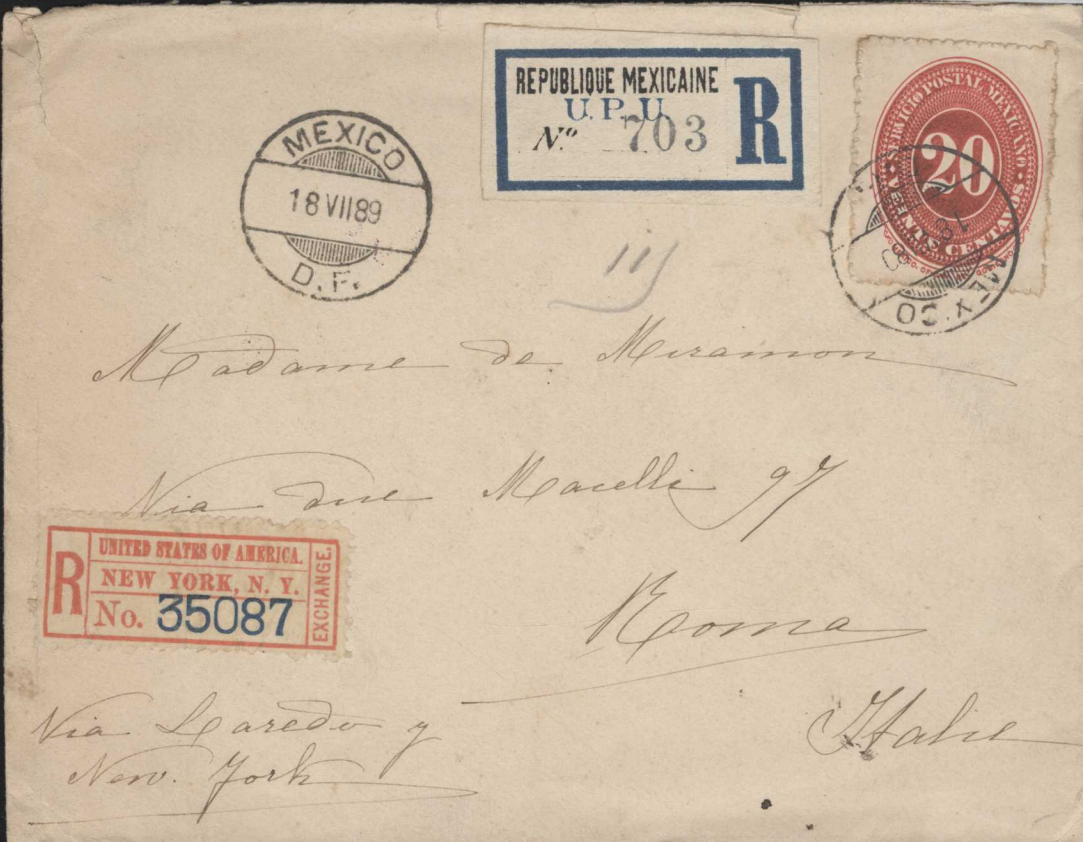 REPUBLIQUE MEXICAINE
U.P.U.
Nº 703
R
SERVICIO POSTAL MEXICANO
20
VEINTE CENTAVOS
MEXICO
18 VII 89
D.F.
MEXICO
18
Madame de Miramon
Via due Macelli 97
Roma
Italie
R
UNITED STATES OF AMERICA.
NEW YORK, N. Y.
No. 35087
EXCHANGE.
Via Laredo y
New. York